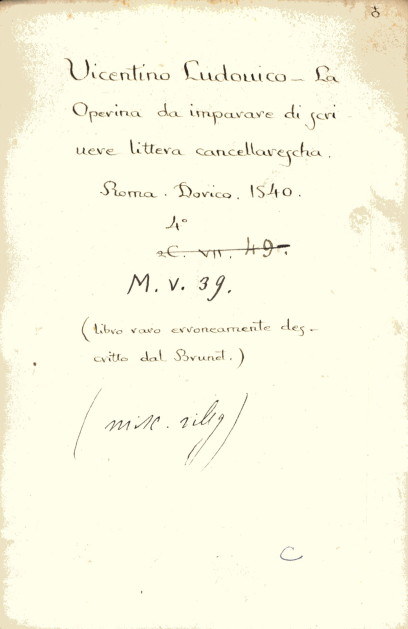 Vicentino Ludouico – La
Operina da imparare di scri
uere littera cancellarescha.
Roma. Dorico. 1540.
4°
2C. VII. 49.
M. V. 39.
(libro raro erroneamente des-
critto dal Brunet.)
(misc. rileg)
C